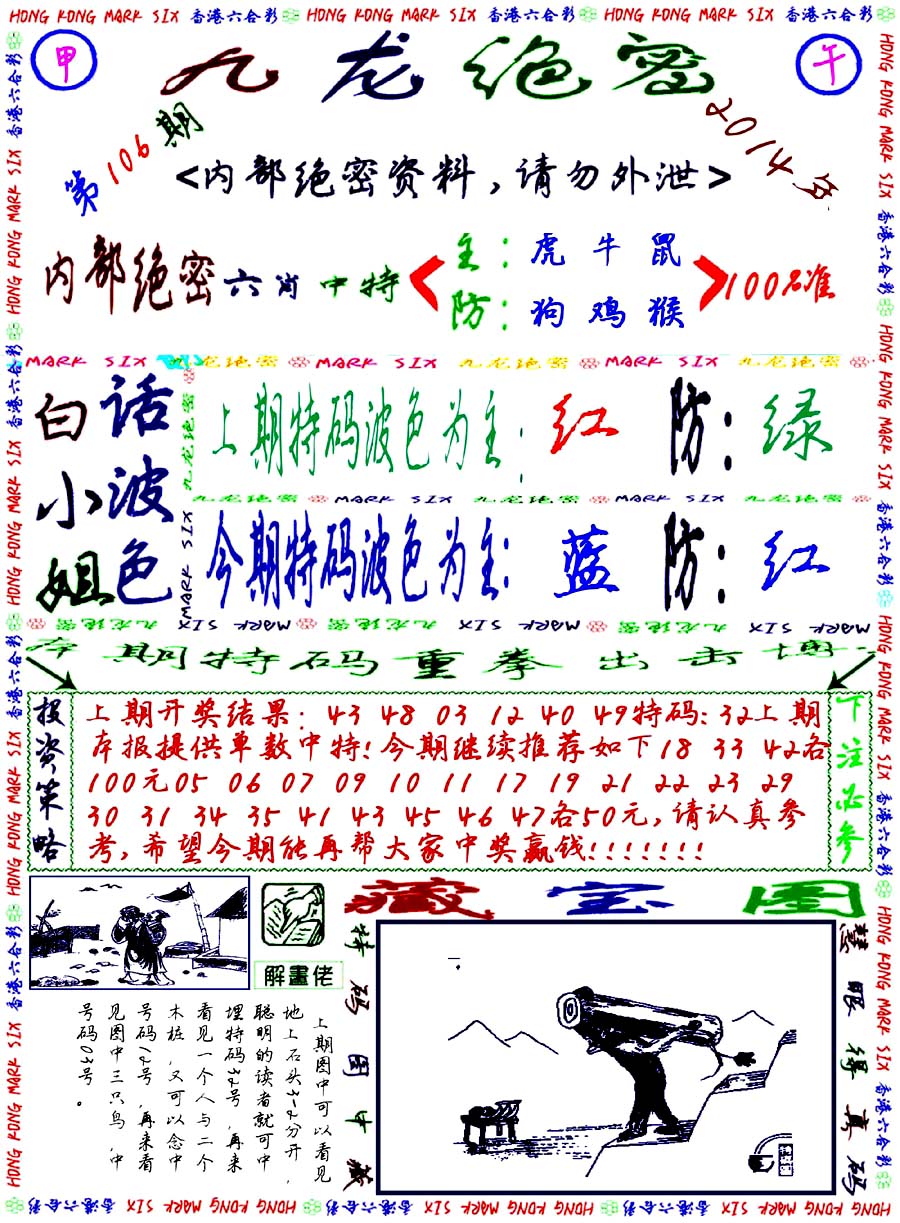 HONG KONG MARK SIX 香港六合彩 HONG KONG MARK SIX 香港六合彩 HONG KONG MARK SIX 香港六合彩
甲 九龙绝密 午
第106期
2014年
<内部绝密资料,请勿外泄>
内部绝密六肖中特
主: 虎 牛 鼠
防: 狗 鸡 猴
100%准
MARK SIX 九龙绝密 MARK SIX 九龙绝密 MARK SIX 九龙绝密
白话
小波
姐色
上期特码波色为主: 红 防: 绿
九龙绝密 MARK SIX 九龙绝密 MARK SIX 九龙绝密
今期特码波色为主: 蓝 防: 红
本期特码重拳出击博
投资策略
上期开奖结果: 43 48 03 12 40 49特码: 32上期
本报提供单数中特!今期继续推荐如下18 33 42各
100元05 06 07 09 10 11 17 19 21 22 23 29
30 31 34 35 41 43 45 46 47各50元,请认真参
考,希望今期能再帮大家中奖赢钱!!!!!!!
下注必参
藏宝图
解畫佬
特码图中藏
慧眼得真码
上期图中可以看见
地上石头3-2分开,
聪明的读者就可中
埋特码32号,再来
看见一个人与二个
木桩,又可以念中
号码12号,再来看
见图中三只鸟,中
号码03号。